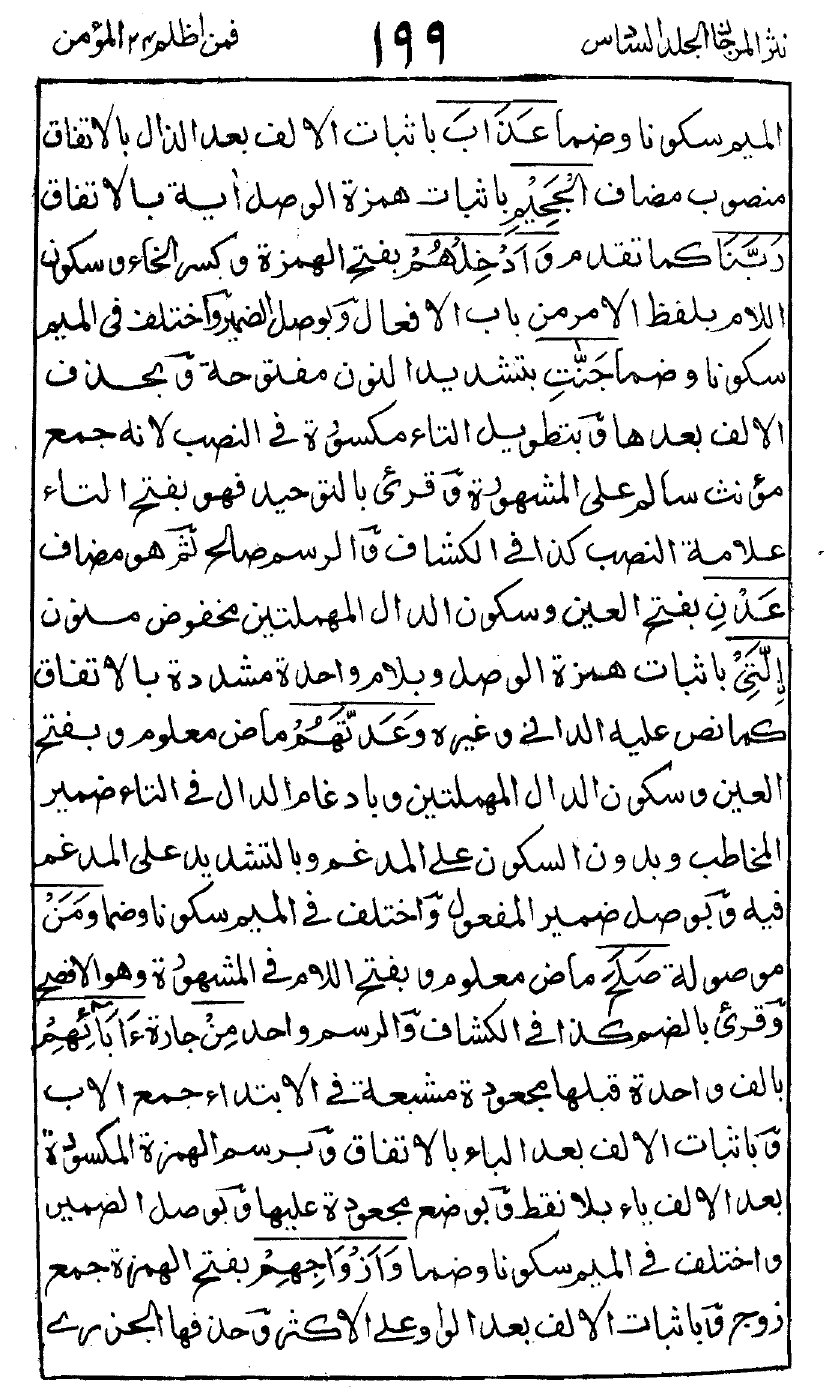 نثر المرجان الجلد السادس ١٩٩ فمن اظلم ٢٤ المؤمن
الميم سكونا وضما عَذَابَ باثبات الالف بعد الذال بالاتفاق
منصوب مضاف الْجَحِيْمِ باثبات همزة الوصل أية بالاتفاق
رَبَّنَا كما تقدم وَاَدْخِلْهُمْ بفتح الهمزة وكسر الخاء وسكون
اللام بلفظ الامر من باب الافعال وَبوصل الضمير وَاختلف فى الميم
سكونا وضما جَنّٰتِ بتشديد النون مفتوحة وَبحذف
الالف بعدها وَبتطويل التاء مكسورة فى النصب لانه جمع
مؤنث سالم على المشهورة وَقرئ بالتوحيد فهو بفتح التاء
علامة النصب كذا فى الكشاف وَالرسم صالح ثم هو مضاف
عَدْنِ بفتح العين وسكون الدال المهملتين مخفوض منون
اِلَّتِىْ باثبات همزة الوصل وبلام واحدة مشددة بالاتفاق
كما نص عليه الدانى وغيره وَعَدتَّهُمْ ماض معلوم وبفتح
العين وسكون الدال المهملتين وبادغام الدال فى التاء ضمير
المخاطب وبدون السكون على المدغم وبالتشديد على المدغم
فيه وَبوصل ضمير المفعول وَاختلف فى الميم سكونا وضما وَمَنْ
موصولة صَلَحَ ماض معلوم وبفتح اللام فى المشهورة وهو الافصح
وَقرئ بالضم كذا فى الكشاف وَالرسم واحد مِنْ جارة ءَابَائِهِمْ
بالف واحدة قبلها مجعودة مشبعة فى الابتداء جمع الاب
وَباثبات الالف بعد الباء بالاتفاق وَبرسم الهمزة المكسورة
بعد الالف ياء بلا نقط وَبوضع مجعودة عليها وَبوصل الضمير
واختلف فى الميم سكونا وضما وَاَزْوَاجِهِمْ بفتح الهمزة جمع
زوج وَباثبات الالف بعد الواو على الاكثر وَحذفها الجزرى